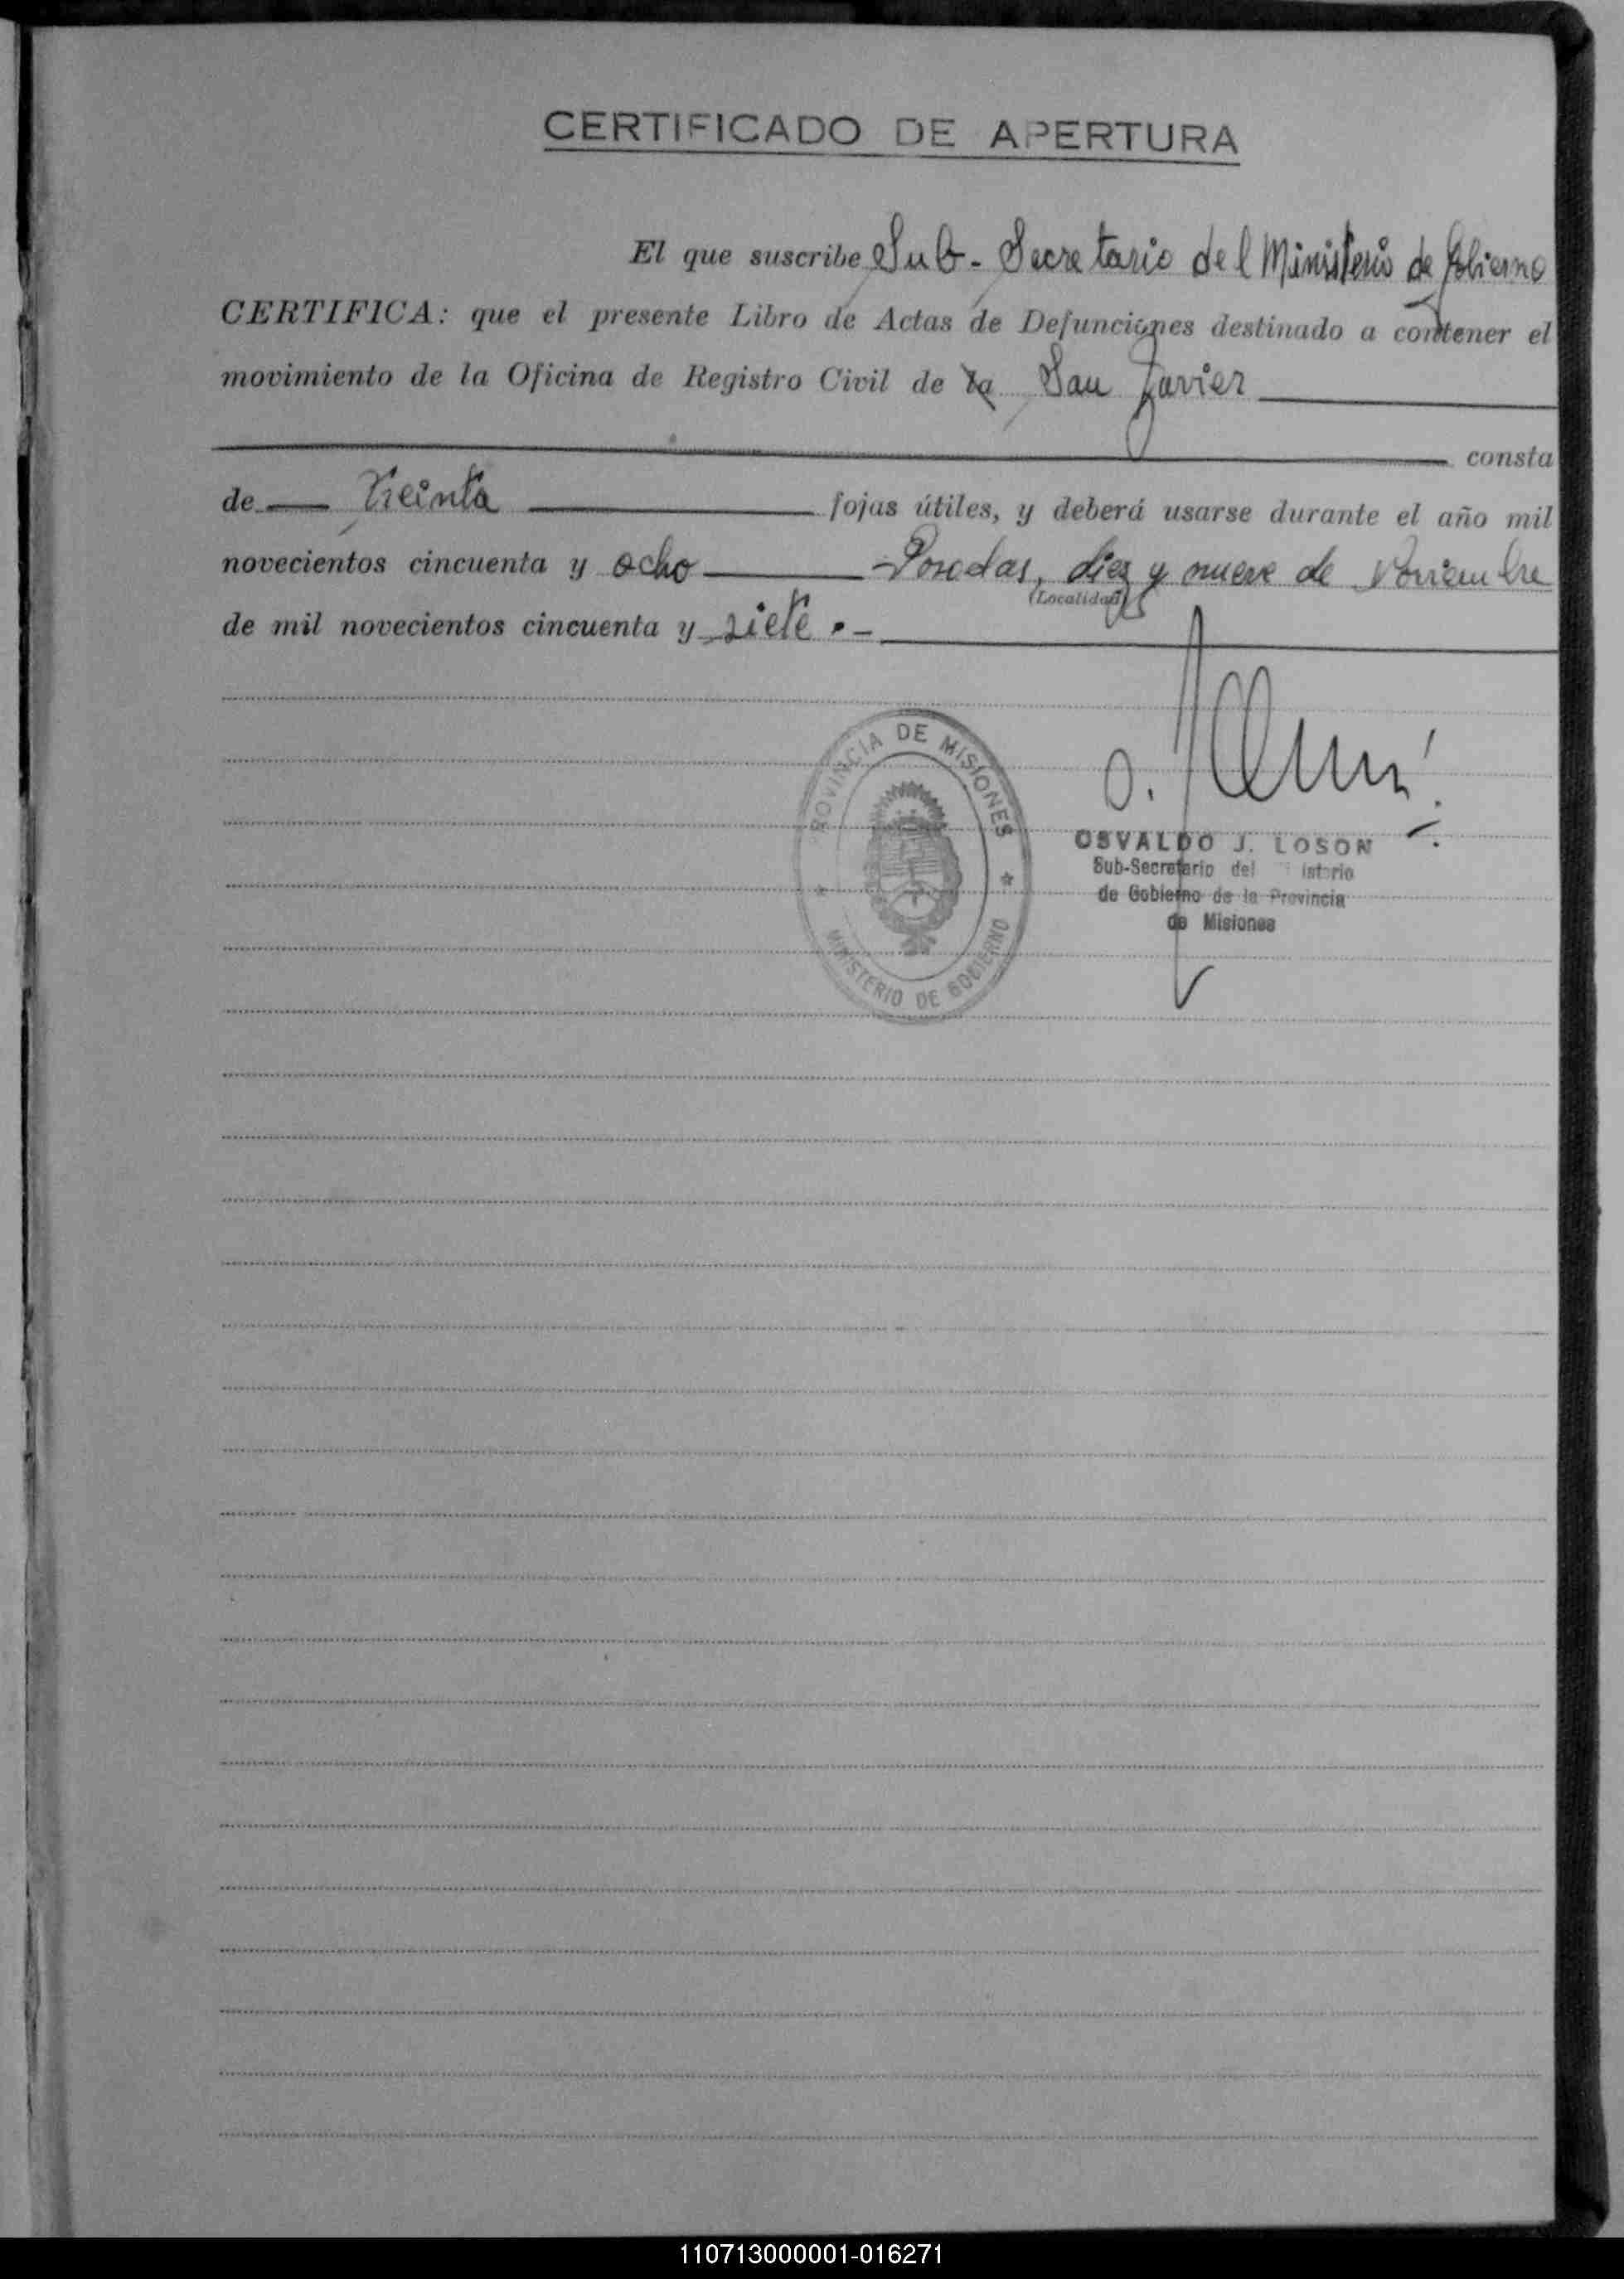 CERTIFICADO DE APERTURA
El que suscribe Sub-Secretario del Ministerio de Gobierno
CERTIFICA: que el presente Libro de Actas de Defunciones destinado a contener el
movimiento de la Oficina de Registro Civil de la San Javier
consta
de Treinta fojas útiles, y deberá usarse durante el año mil
novecientos cincuenta y ocho Posadas, diez y nueve de Noviembre
(Localidad)
de mil novecientos cincuenta y siete.-
PROVINCIA DE MISIONES
MINISTERIO DE GOBIERNO
OSVALDO J. LOSON
Sub-Secretario del
de Gobierno de la Provincia
de Misiones
110713000001-016271